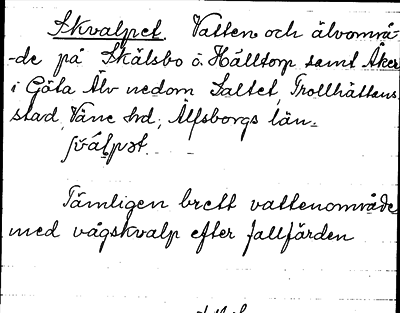 Skvalpet. Vatten och älvområ-
-de på Skälsbo o. Hälltorp samt Åker
i Göta Älv nedom Saltet, Trollhättans
stad, Väne hd, Älfsborgs län.
Tämligen brett vattenområde
med vågskvalp efter fallfärden